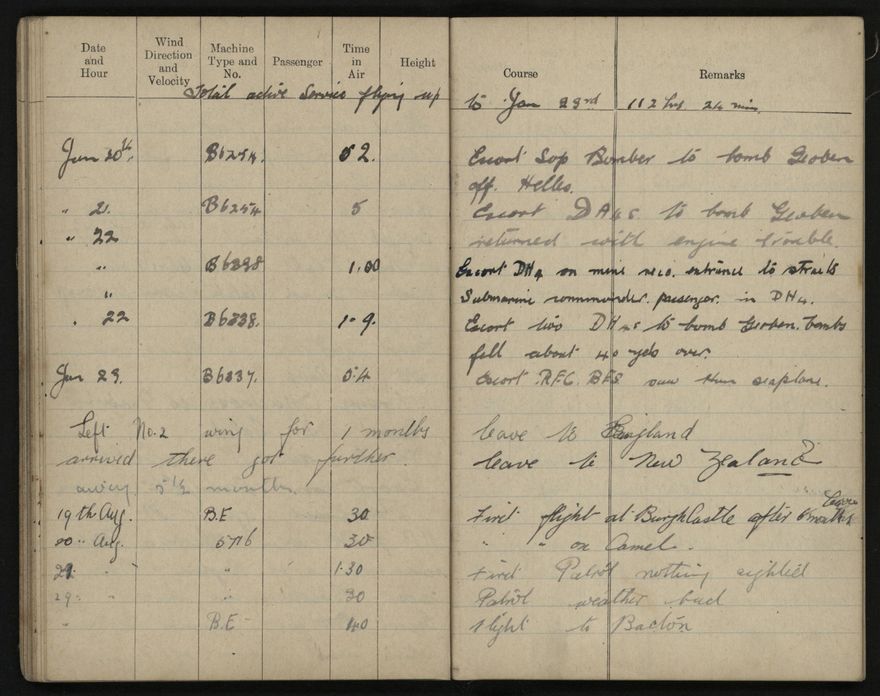 Date and Hour Wind Direction and Velocity Machine Type and No. Passenger Time in Air Height Course Remarks
Total active Service flying up to Jan 23rd 112 hrs. 24 min.
Jan 20th. B6254. 52. Escort Sop Bomber to bomb Goeben
off. Helles.
" 21. B6254 5 Escort DH4s to bomb Goeben
" 22 returned with engine trouble.
" 1.00 Escort DH4 on mine reco. entrance to straits
" Submarine commander. passenger. in DH4.
" 22 B6238. 1-9. Escort two DH4s to bomb Goeben. bombs
fell about 40 yds over.
Jan 23. B6237. 54 Escort R.F.C. saw seaplane.
Left No. 2 wing for 1 months leave to England
arrived there got further leave to New Zealand
away 5½ months.
19th Aug. B.E 30 First flight at BurghCastle after 6 months leave
20 " Aug. 5716 30 " " on Camel.
29 " " 1.30 First Patrol nothing sighted
29 " " 30 Patrol weather bad
" B.E 40 Flight to Bacton